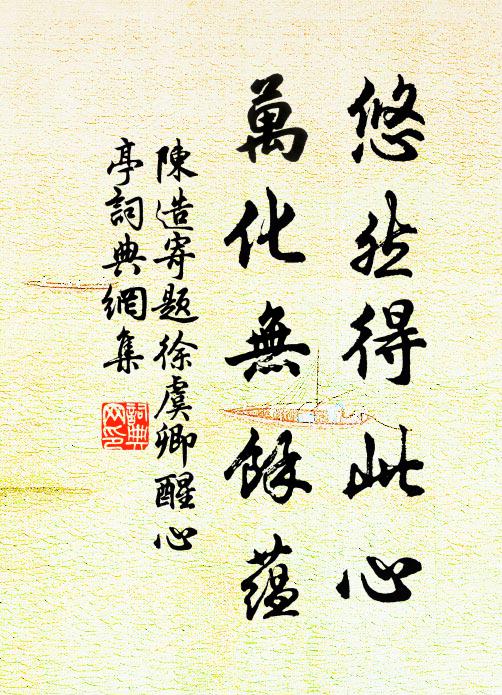 悠然得此心
萬化無餘蘊
陳造寄題徐虞卿醒心
亭詞典網集
詞典
网印